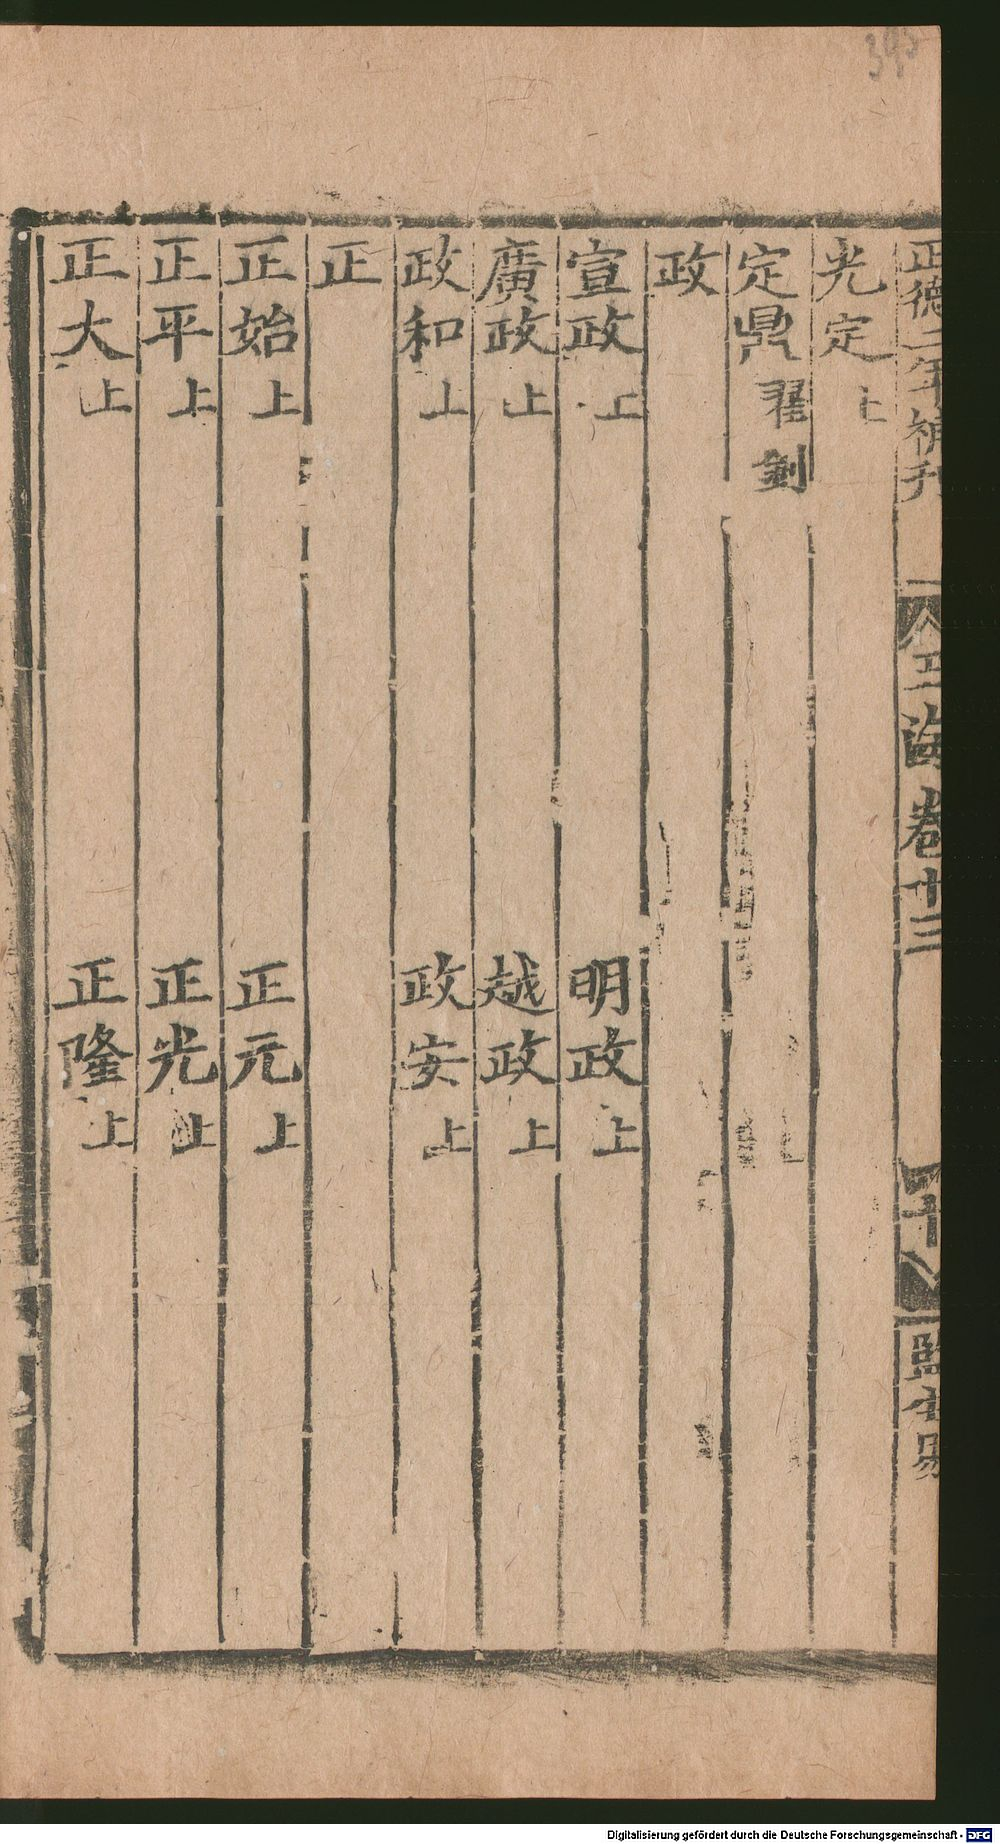 395
正德二年補刋
玉海卷十三
十八
監生易
光定上
定鼎翟釗
政
宣政上 明政上
廣政上 越政上
政和上 政安上
正
正始上 正元上
正平上 正光上
正大上 正隆上
Digitalisierung gefördert durch die Deutsche Forschungsgemeinschaft - DFG